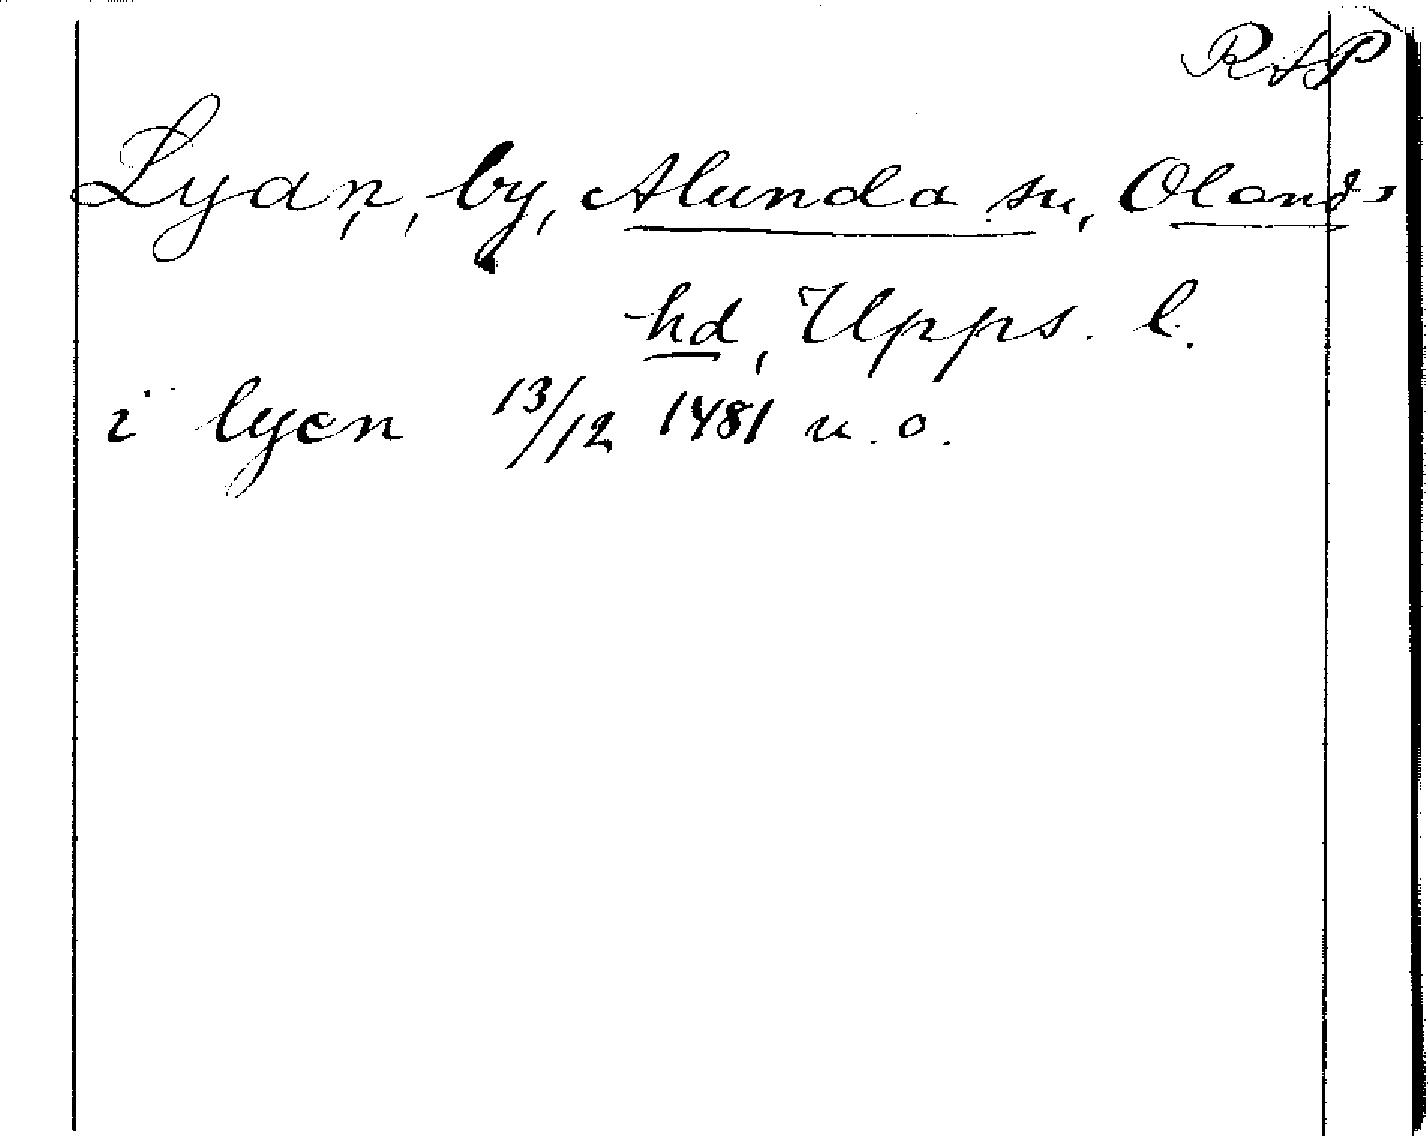 RAP
Lyan, by, Alunda sn, Olands
hd, Upps. l.
i lyen 13/12 1481 u. o.